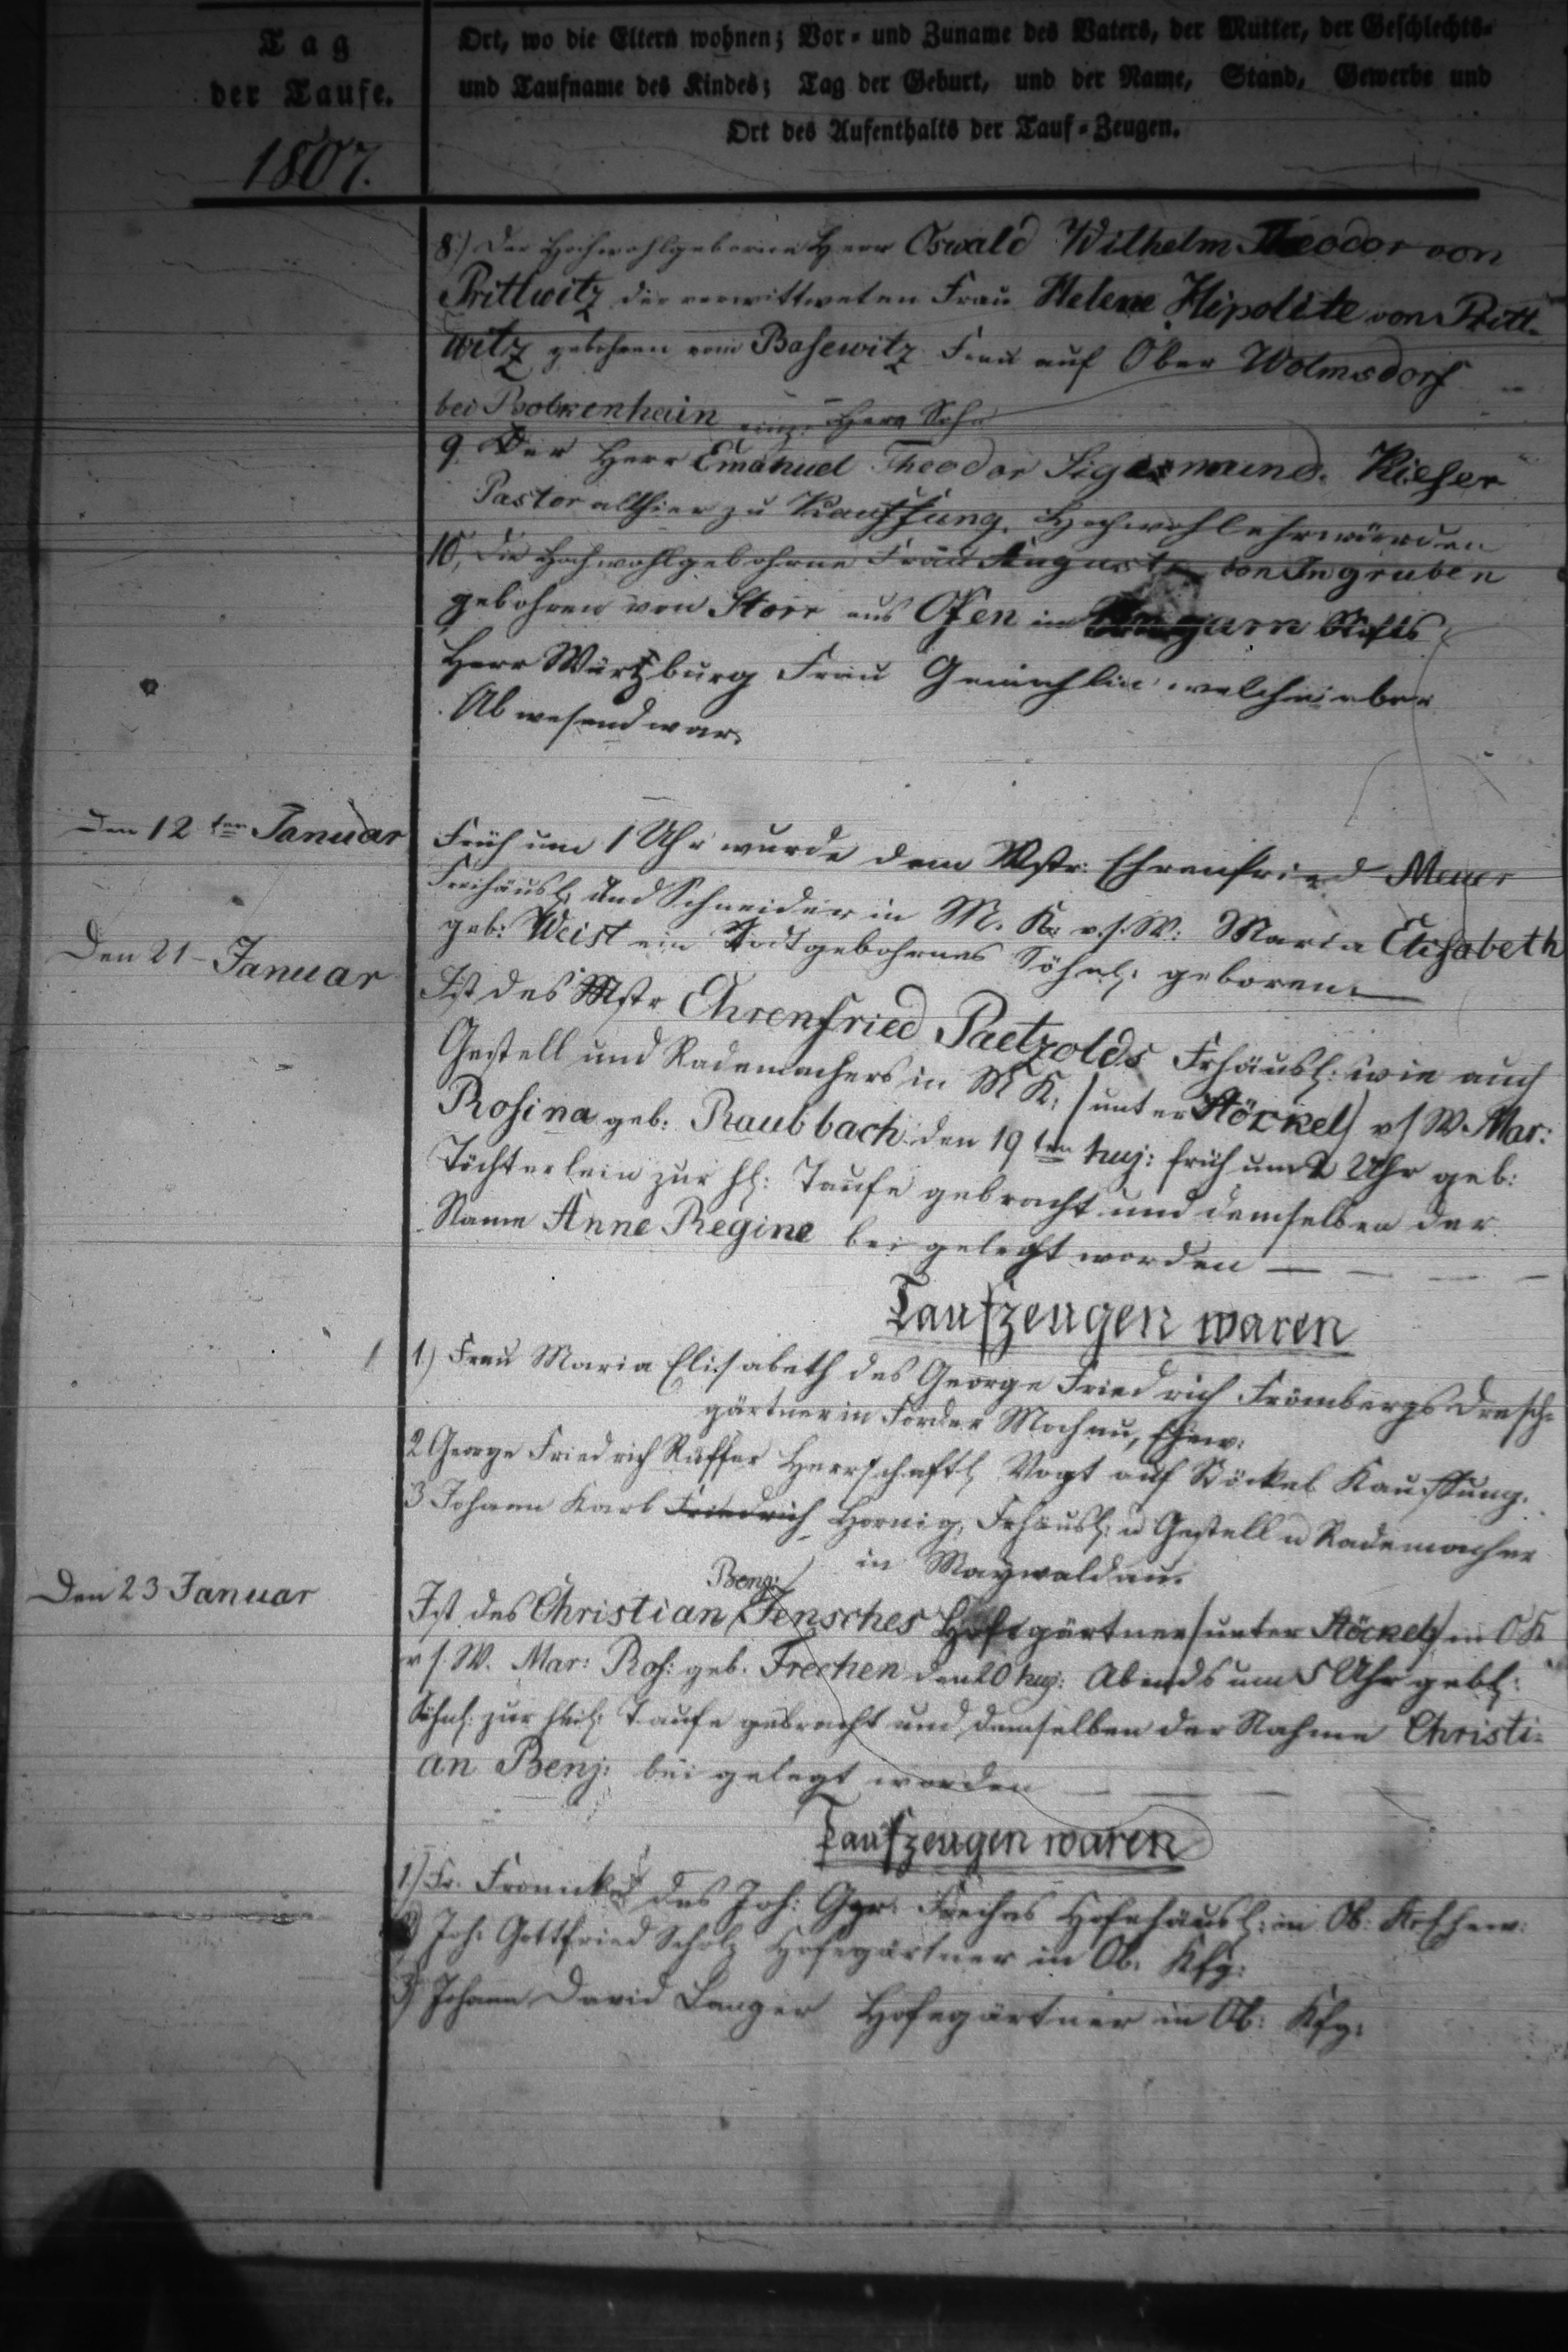 Tag
der Taufe.
1807.
Ort, wo die Eltern wohnen; Vor- und Zuname des Vaters, der Mutter, der Geschlechts-
und Taufname des Kindes; Tag der Geburt, und der Name, Stand, Gewerbe und
Ort des Aufenthalts der Tauf-Zeugen.
8.) Der Hochwohlgeborne Herr Oswald Wilhelm Theodor von
Prittwitz der verwittweten Frau Helene Hipolite von Pritt-
witz gebohren von Basewitz Frau auf Ober Wolmsdorf
bei Bolkenhain Herr Sohn
9. Der Herr Emanuel Theodor Sigismund. Kieser
Pastor allhier zu Kauffung. Hochwohlehrwürden
10, Die Hochwohlgebohrne Frau von Ingruben
gebohren von Storr aus Ofen in
Herr Würtzburg Frau Gemahlin welche aber
Abwesend war.
Den 12ten Januar
Früh um 1 Uhr wurde dem Mstr: Ehrenfried
Freihäusl: und Schneider in M. K: v. s. W: Maria Elisabeth
geb: Weist ein Todtgebohrnes Söhnl: geboren
Den 21 Januar
Ist des Mstr Ehrenfried Paetzolds Frhäusl: wie auch
Gestell und Rademachers in M K: (unter Stöckel) v s W. Mar:
Rosina geb: Raubbach den 19ten huj: früh um 2 Uhr geb:
Töchterlein zur hl: Taufe gebracht und demselben der
Name Anne Regine bei gelegt worden
Taufzeugen waren
1.) Frau Maria Elisabeth des George Friedrich Frömbergs Dresch-
gärtner in Forder Mochau, Ehew:
2 George Friedrich Rüffer Herrschaftl Vogt auf Stöckel Kauffung.
3 Johann Karl Friedrich Hornig, Frhäusl: u Gestell u Rademacher
in Maywaldau.
Den 23 Januar
Benj:
Ist des Christian Jensches Hofegärtner (unter Stöckel) in O K
v s. W. Mar: Ros: geb. Frechen den 20 huj: Abends um 5 Uhr gebl:
Söhnl: zur heil: Taufe gebracht und demselben der Nahme Christi-
an Benj: bei gelegt worden
Taufzeugen waren
1.) Fr. des Joh: Hofehäusl: in Ob:
2) Joh: Gottfried Scholz Hofegärtner in Ob. Kfg:
3) Johann David Langer Hofegärtner in Ob: Kfg: